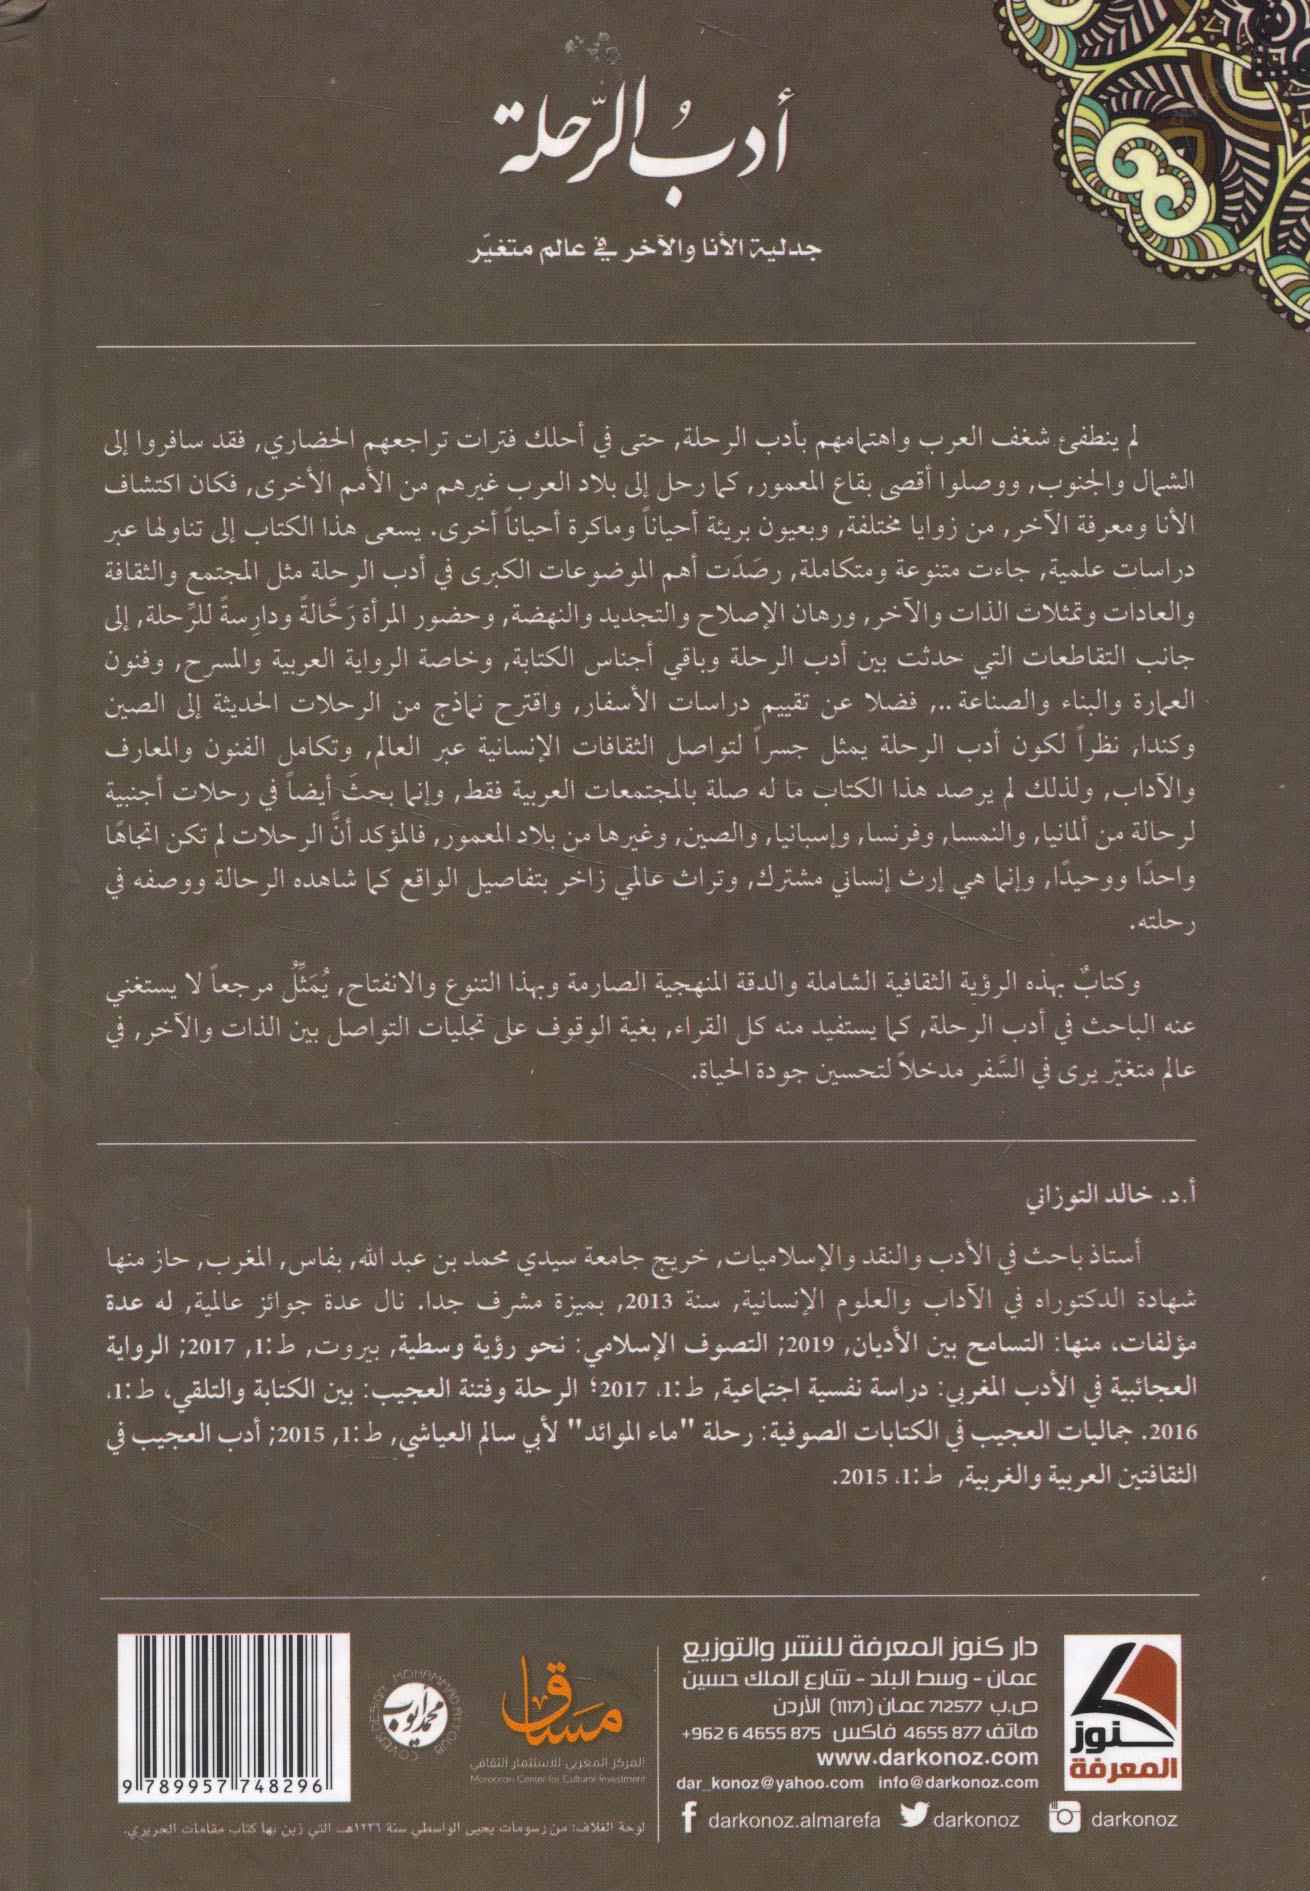 أدبُ الرّحلة
جدلية الأنا والآخر في عالم متغيّر
لم ينطفئ شغف العرب واهتمامهم بأدب الرحلة, حتى في أحلك فترات تراجعهم الحضاري, فقد سافروا إلى
الشمال والجنوب, ووصلوا أقصى بقاع المعمور, كما رحل إلى بلاد العرب غيرهم من الأمم الأخرى, فكان اكتشاف
الأنا ومعرفة الآخر, من زوايا مختلفة, وبعيون بريئة أحياناً وماكرة أحياناً أخرى. يسعى هذا الكتاب إلى تناولها عبر
دراسات علمية, جاءت متنوعة ومتكاملة, رصَدَت أهم الموضوعات الكبرى في أدب الرحلة مثل المجتمع والثقافة
والعادات وتمثلات الذات والآخر, ورهان الإصلاح والتجديد والنهضة, وحضور المرأة رَحَّالةً ودارِسةً للرِّحلة, إلى
جانب التقاطعات التي حدثت بين أدب الرحلة وباقي أجناس الكتابة, وخاصة الرواية العربية والمسرح, وفنون
العمارة والبناء والصناعة .., فضلا عن تقييم دراسات الأسفار, واقترح نماذج من الرحلات الحديثة إلى الصين
وكندا, نظراً لكون أدب الرحلة يمثل جسراً لتواصل الثقافات الإنسانية عبر العالم, وتكامل الفنون والمعارف
والآداب, ولذلك لم يرصد هذا الكتاب ما له صلة بالمجتمعات العربية فقط, وإنما بحثَ أيضاً في رحلات أجنبية
لرحالة من ألمانيا, والنمسا, وفرنسا, وإسبانيا, والصين, وغيرها من بلاد المعمور, فالمؤكد أنَّ الرحلات لم تكن اتجاهًا
واحدًا ووحيدًا, وإنما هي إرث إنساني مشترك, وتراث عالمي زاخر بتفاصيل الواقع كما شاهده الرحالة ووصفه في
رحلته.
وكتابٌ بهذه الرؤية الثقافية الشاملة والدقة المنهجية الصارمة وبهذا التنوع والانفتاح, يُمَثِّلُ مرجعاً لا يستغني
عنه الباحث في أدب الرحلة, كما يستفيد منه كل القراء, بغية الوقوف على تجليات التواصل بين الذات والآخر, في
عالم متغيّر يرى في السَّفر مدخلاً لتحسين جودة الحياة.
أ.د. خالد التوزاني
أستاذ باحث في الأدب والنقد والإسلاميات, خريج جامعة سيدي محمد بن عبد الله, بفاس, المغرب, حاز منها
شهادة الدكتوراه في الآداب والعلوم الإنسانية, سنة 2013, بميزة مشرف جدا. نال عدة جوائز عالمية, له عدة
مؤلفات، منها: التسامح بين الأديان, 2019; التصوف الإسلامي: نحو رؤية وسطية, بيروت, ط:1, 2017; الرواية
العجائبية في الأدب المغربي: دراسة نفسية اجتماعية, ط:1، 2017؛ الرحلة وفتنة العجيب: بين الكتابة والتلقي، ط:1،
2016. جماليات العجيب في الكتابات الصوفية: رحلة "ماء الموائد" لأبي سالم العياشي, ط:1, 2015; أدب العجيب في
الثقافتين العربية والغربية, ط:1، 2015.
كنوز
المعرفة
دار كنوز المعرفة للنشر والتوزيع
عمان - وسط البلد - شارع الملك حسين
ص.ب 712577 عمان (11171) الأردن
هاتف 877 4655 فاكس 875 4655 6 962+
www.darkonoz.com
dar_konoz@yahoo.com info@darkonoz.com
darkonoz.almarefa darkonoz darkonoz
مساق
المركز المغربي للاستثمار الثقافي
Moroccan Center for Cultural Investment
محمد أيوب
MOHAMMAD AYYOUB
COVER DESIGN
9 789957 748296
لوحة الغلاف: من رسومات يحيى الواسطي سنة ١٢٣٦هـ، التي زين بها كتاب مقامات الحريري.